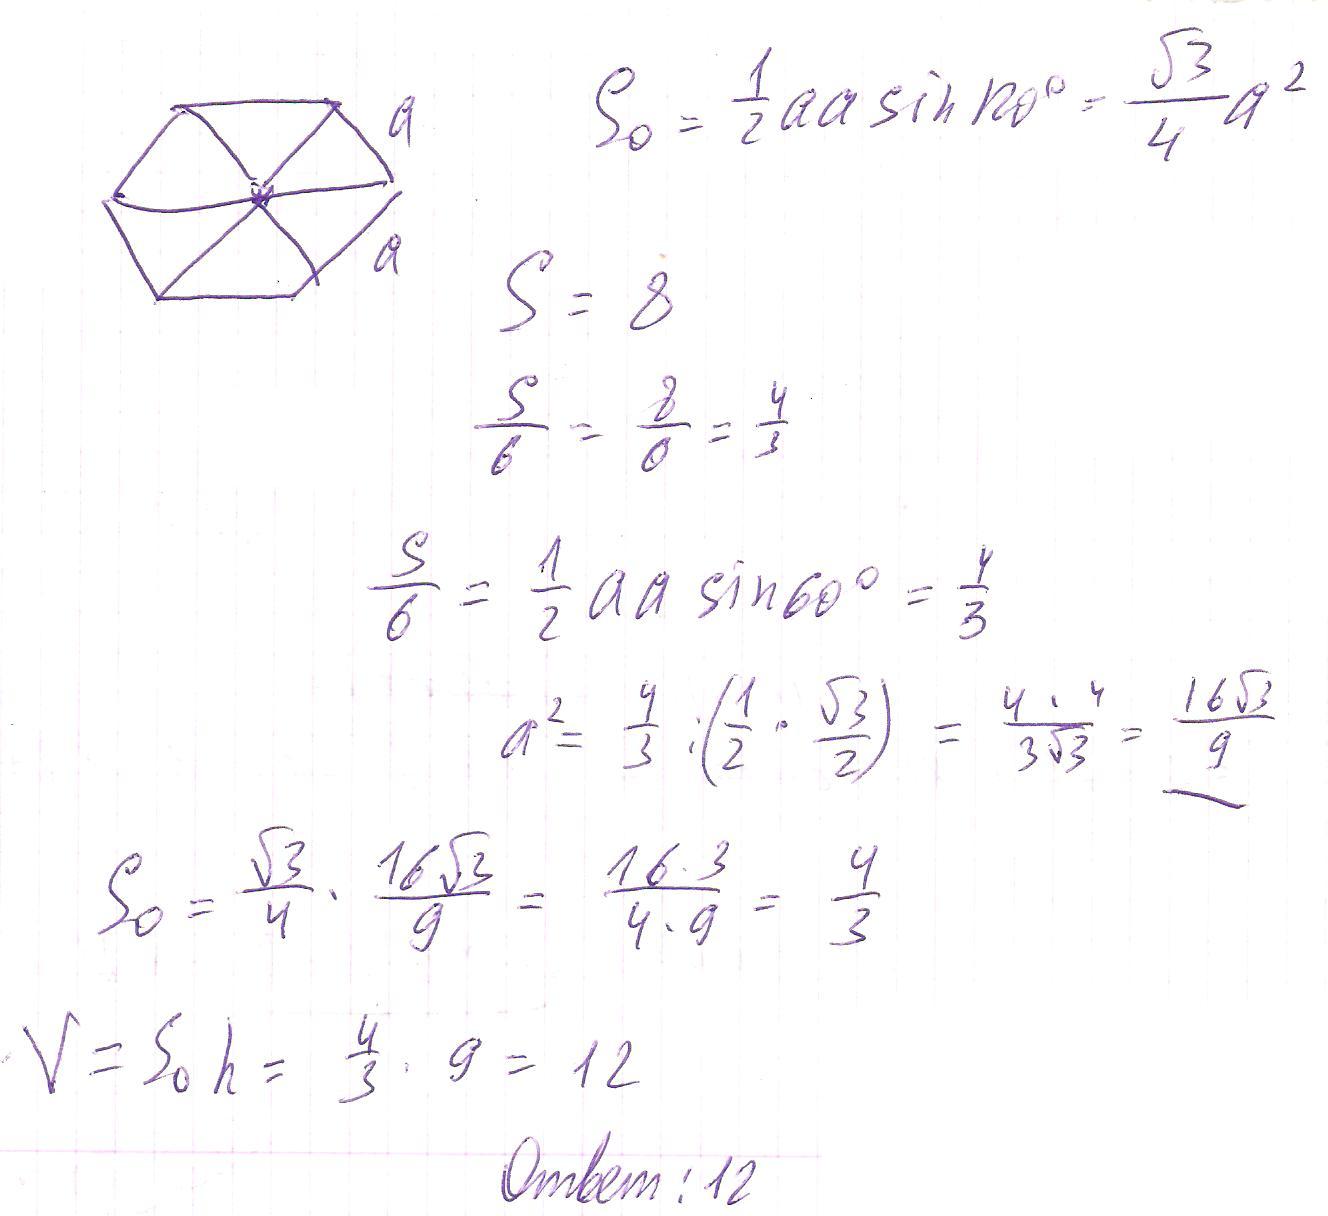 a
a
S₀ = 1/2 a a sin 120° = √3/4 a²
S = 8
S/6 = 8/6 = 4/3
S/6 = 1/2 a a sin 60° = 4/3
a² = 4/3 : (1/2 · √3/2) = 4 · 4/3√3 = 16√3/9
S₀ = √3/4 · 16√3/9 = 16·3/4·9 = 4/3
V = S₀ h = 4/3 · 9 = 12
Ответ: 12